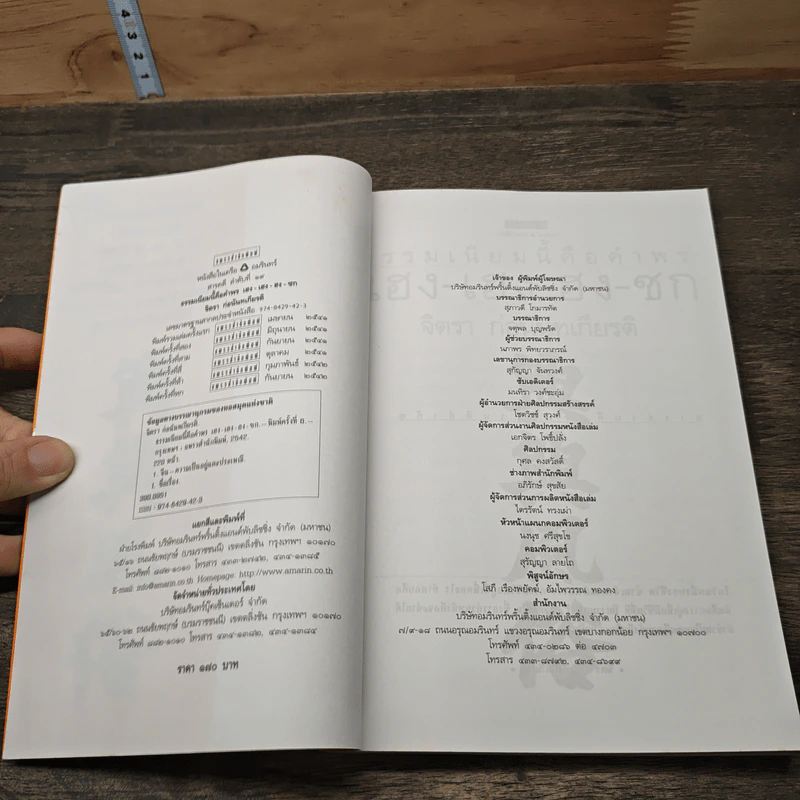 4 3 2 1
แพรวสำนักพิมพ์
หนังสือในเครือ อมรินทร์
สารคดี ลำดับที่ ๑๙
ธรรมเนียมนี้คือคำพร เฮง-เฮง-ฮง-ชก
จิตรา ก่อนันทเกียรติ
เลขมาตรฐานสากลประจำหนังสือ 974-8429-42-3
พิมพ์รวมเล่มครั้งแรก แพรวสำนักพิมพ์ เมษายน ๒๕๔๑
พิมพ์ครั้งที่สอง แพรวสำนักพิมพ์ มิถุนายน ๒๕๔๑
พิมพ์ครั้งที่สาม แพรวสำนักพิมพ์ กันยายน ๒๕๔๑
พิมพ์ครั้งที่สี่ แพรวสำนักพิมพ์ ตุลาคม ๒๕๔๑
พิมพ์ครั้งที่ห้า แพรวสำนักพิมพ์ กุมภาพันธ์ ๒๕๔๒
พิมพ์ครั้งที่หก แพรวสำนักพิมพ์ กันยายน ๒๕๔๒
ข้อมูลทางบรรณานุกรมของหอสมุดแห่งชาติ
จิตรา ก่อนันทเกียรติ.
ธรรมเนียมนี้คือคำพร เฮง-เฮง-ฮง-ชก.-- พิมพ์ครั้งที่ 6.--
กรุงเทพฯ : แพรวสำนักพิมพ์, 2542.
220 หน้า.
1. จีน--ความเป็นอยู่และประเพณี.
I. ชื่อเรื่อง.
390.0951
ISBN : 974-8429-42-3
แยกสีและพิมพ์ที่
ฝ่ายโรงพิมพ์ บริษัทอมรินทร์พริ้นติ้งแอนด์พับลิชชิ่ง จำกัด (มหาชน)
๖๕/๑๖ ถนนชัยพฤกษ์ (บรมราชชนนี) เขตตลิ่งชัน กรุงเทพฯ ๑๐๑๗๐
โทรศัพท์ ๘๘๒-๑๐๑๐ โทรสาร ๔๓๓-๒๗๔๒, ๔๓๔-๑๓๘๕
E-mail: info@amarin.co.th Homepage: http://www.amarin.co.th
จัดจำหน่ายทั่วประเทศโดย
บริษัทอมรินทร์บุ๊คเซ็นเตอร์ จำกัด
๖๕/๖๐-๖๒ ถนนชัยพฤกษ์ (บรมราชชนนี) เขตตลิ่งชัน กรุงเทพฯ ๑๐๑๗๐
โทรศัพท์ ๘๘๒-๑๐๑๐ โทรสาร ๔๓๔-๑๓๘๓, ๔๓๔-๑๓๘๔
ราคา ๑๗๐ บาท
เจ้าของ ผู้พิมพ์ผู้โฆษณา
บริษัทอมรินทร์พริ้นติ้งแอนด์พับลิชชิ่ง จำกัด (มหาชน)
บรรณาธิการอำนวยการ
สุภาวดี โกมารทัต
บรรณาธิการ
จตุพล บุญพรัด
ผู้ช่วยบรรณาธิการ
นภาพร พิทยวราภรณ์
เลขานุการกองบรรณาธิการ
สุกัญญา จันทวงศ์
ซับเอดิเตอร์
มนทิรา วงศ์ชะอุ่ม
ผู้อำนวยการฝ่ายศิลปกรรมสร้างสรรค์
โชควิชช์ สุวงศ์
ผู้จัดการส่วนงานศิลปกรรมหนังสือเล่ม
เอกจิตร โพธิ์ปลั่ง
ศิลปกรรม
กุศล คงสวัสดิ์
ช่างภาพสำนักพิมพ์
อภิรักษ์ สุขสัย
ผู้จัดการส่วนการผลิตหนังสือเล่ม
ไตรรัตน์ ทรงเผ่า
หัวหน้าแผนกคอมพิวเตอร์
นงนุช ศรีสุขโข
คอมพิวเตอร์
สุรัญญา ลายโถ
พิสูจน์อักษร
โสภี เรืองพยัคฆ์, อัมไพวรรณ ทองคง
สำนักงาน
บริษัทอมรินทร์พริ้นติ้งแอนด์พับลิชชิ่ง จำกัด (มหาชน)
๗/๙-๑๘ ถนนอรุณอมรินทร์ แขวงอรุณอมรินทร์ เขตบางกอกน้อย กรุงเทพฯ ๑๐๗๐๐
โทรศัพท์ ๔๓๔-๐๒๘๖ ต่อ ๔๗๐๓
โทรสาร ๔๓๓-๘๗๙๒, ๔๓๔-๘๖๙๙